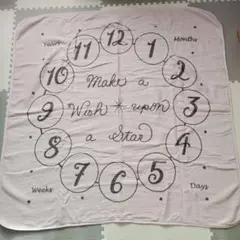 12
11 1
Years Months
10 2
Make a
9 Wish * upon 3
a Star
8 4
7 6 5
Weeks Days